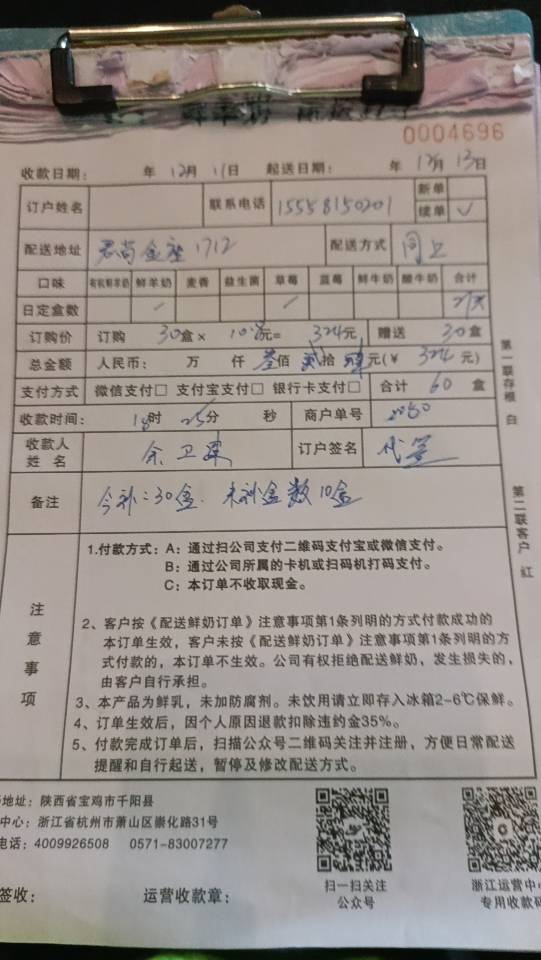 0004696
收款日期： 年 12月 11日 起送日期： 年 12月 13日
订户姓名 联系电话 15558150201 新单
续单 ✓
配送地址 君尚金座1712 配送方式 同上
口味 有机鲜羊奶 鲜羊奶 麦香 益生菌 草莓 蓝莓 鲜牛奶 酸牛奶 合计
日定盒数
订购价 订购 30盒× 10.8元= 324元 赠送 30盒
总金额 人民币： 万 仟 叁佰 贰拾 肆元(￥ 324 元)
支付方式 微信支付□ 支付宝支付□ 银行卡支付□ 合计 60 盒
收款时间： 18时 25分 秒 商户单号
收款人姓名 余卫 订户签名 代签
备注 今补：30盒. 未补盒数10盒
注意事项
1.付款方式：A：通过扫公司支付二维码支付宝或微信支付。
B：通过公司所属的卡机或扫码机打码支付。
C：本订单不收取现金。
2、客户按《配送鲜奶订单》注意事项第1条列明的方式付款成功的
本订单生效，客户未按《配送鲜奶订单》注意事项第1条列明的方
式付款的，本订单不生效。公司有权拒绝配送鲜奶，发生损失的，
由客户自行承担。
3、本产品为鲜乳，未加防腐剂。未饮用请立即存入冰箱2-6℃保鲜。
4、订单生效后，因个人原因退款扣除违约金35%。
5、付款完成订单后，扫描公众号二维码关注并注册，方便日常配送
提醒和自行起送，暂停及修改配送方式。
第一联存根 白
第二联客户 红
地址：陕西省宝鸡市千阳县
中心：浙江省杭州市萧山区崇化路31号
电话：4009926508 0571-83007277
扫一扫关注
公众号
浙江运营中
专用收款码
签收： 运营收款章：